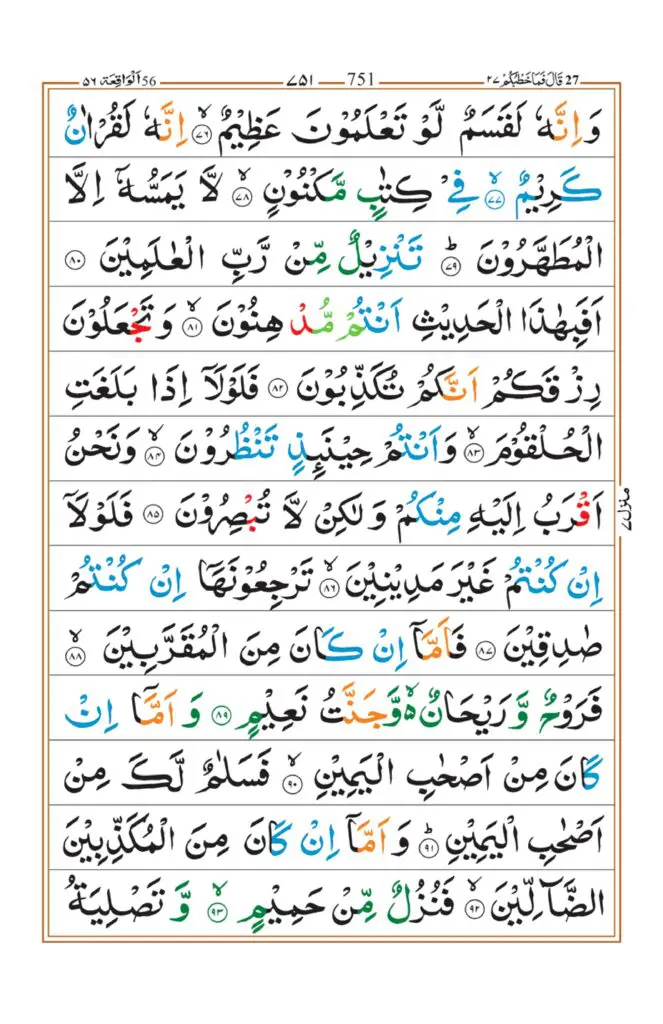 27 قَالَ فَمَا خَطْبُكُمْ ٢٧ 751 ٧٥١ 56 اَلْوَاقِعَة ٥٦
وَاِنَّهٗ لَقَسَمٌ لَّوْ تَعْلَمُوْنَ عَظِيْمٌ ۙ‏﴿۷۶﴾ اِنَّهٗ لَقُرْاٰنٌ
كَرِيْمٌ ۙ‏﴿۷۷﴾ فِىْ كِتٰبٍ مَّكْنُوْنٍ ۙ‏﴿۷۸﴾ لَّا يَمَسُّهٗۤ اِلَّا
الْمُطَهَّرُوْنَ ؕ‏﴿۷۹﴾ تَنْزِيْلٌ مِّنْ رَّبِّ الْعٰلَمِيْنَ‏ ﴿۸۰﴾
اَفَبِهٰذَا الْحَدِيْثِ اَنْتُمْ مُّدْهِنُوْنَ ۙ‏﴿۸۱﴾ وَتَجْعَلُوْنَ
رِزْقَكُمْ اَنَّكُمْ تُكَذِّبُوْنَ‏ ﴿۸۲﴾ فَلَوْلَاۤ اِذَا بَلَغَتِ
الْحُلْقُوْمَ ۙ‏﴿۸۳﴾ وَاَنْتُمْ حِيْنَئِذٍ تَنْظُرُوْنَ ۙ‏﴿۸۴﴾ وَنَحْنُ
اَقْرَبُ اِلَيْهِ مِنْكُمْ وَلٰكِنْ لَّا تُبْصِرُوْنَ‏ ﴿۸۵﴾ فَلَوْلَاۤ
اِنْ كُنْتُمْ غَيْرَ مَدِيْنِيْنَ ۙ‏﴿۸۶﴾ تَرْجِعُوْنَهَاۤ اِنْ كُنْتُمْ
صٰدِقِيْنَ‏ ﴿۸۷﴾ فَاَمَّاۤ اِنْ كَانَ مِنَ الْمُقَرَّبِيْنَ ۙ‏﴿۸۸﴾
فَرَوْحٌ وَّرَيْحَانٌ ۙ۬ وَّجَنَّتُ نَعِيْمٍ‏ ﴿۸۹﴾ وَاَمَّاۤ اِنْ
كَانَ مِنْ اَصْحٰبِ الْيَمِيْنِ ۙ‏﴿۹۰﴾ فَسَلٰمٌ لَّكَ مِنْ
اَصْحٰبِ الْيَمِيْنِ ؕ‏﴿۹۱﴾ وَاَمَّاۤ اِنْ كَانَ مِنَ الْمُكَذِّبِيْنَ
الضَّآلِّيْنَ ۙ‏﴿۹۲﴾ فَنُزُلٌ مِّنْ حَمِيْمٍ ۙ‏﴿۹۳﴾ وَّتَصْلِيَةُ
منزل ٧